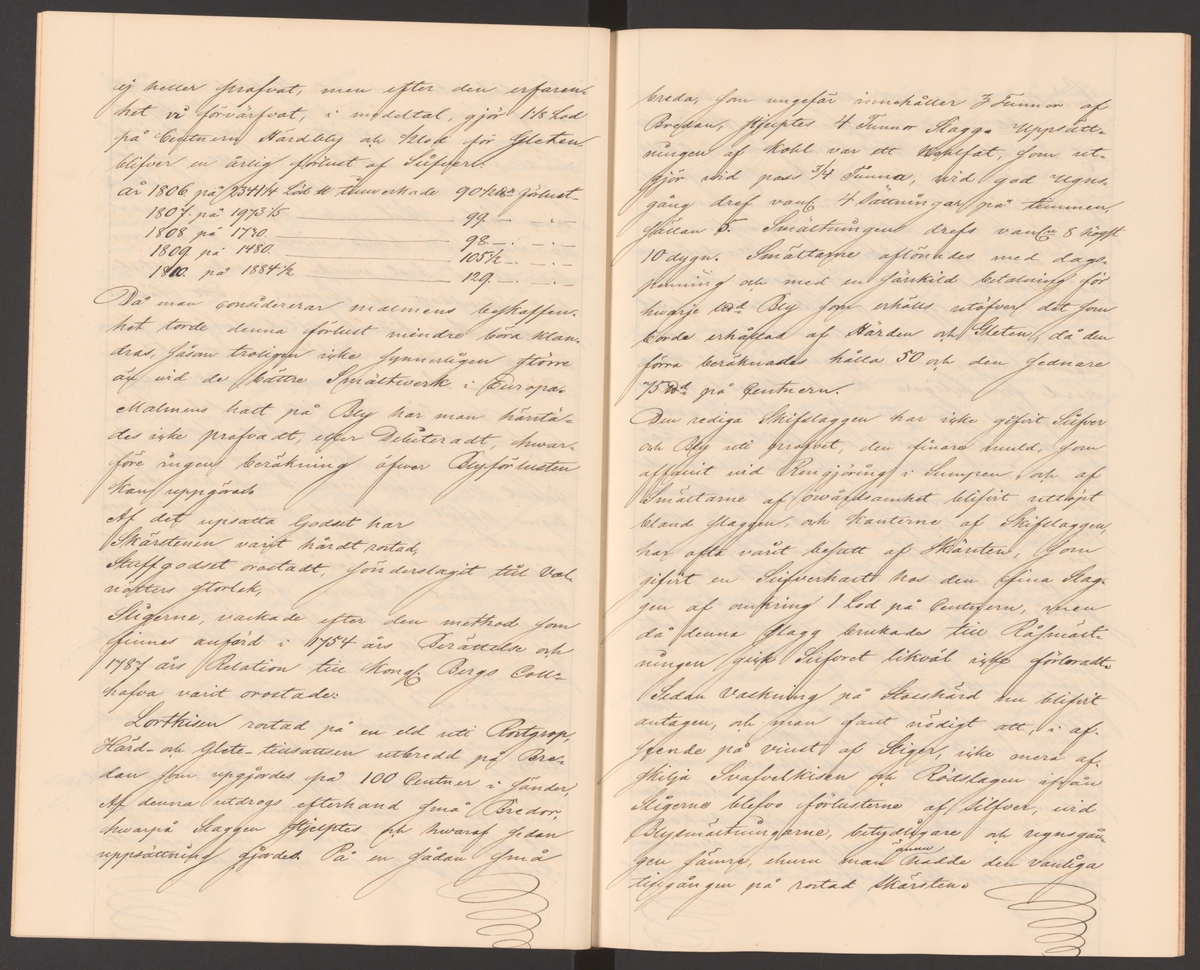 ej heller profvat, men efter den erfaren-
het vi förvärfvat, i medeltal, gjör 1 1/8 Lod
på Centnern Härdbly och Lod för Gleten
blifver en årlig förlust af Silfver:
År 1806 på 2341 1/4 Löd. tillverkade 90 1/2 förlust
1807. på 1973 1/5 99. — . —
1808 på 1730. 98. — . —
1809 på 1480. 105 1/2 — . —
1810. på 1884 1/2 129. — . —
Då man considererar malmens beskaffen-
het torde denna förlust mindre böra klan-
dras, såsom troligen icke synnerligen större
än vid de bättre Smältverk i Europa.
Malmens halt på Bly har man härstä-
des icke profvadt, eller Debiteradt, hwar-
före ingen beräkning öfver Blyförlusten
kan uppgöras.
Af det upsatta Godset har
Skärstenen varit hårdt rostad,
Stuffgodset orostadt, sönderslagit till Val-
nötters storlek,
Sligerne, vaskade efter den method som
finnes anförd i 1754 års Berättelse och
1787 års Relation till Kongl. Bergs Coll=
hafva varit orostade:
Lortkisen rostad på en eld uti Rostgrop,
Härd- och Glete-tillsattsen utbredd på Bre-
dan som upgjordes på 100 Centner i sänder,
Af denna utdrogs efterhand små Bredor,
hwarpå Slaggen hjelptes och hwaraf sedan
uppsättning gjordes. På en sådan små
breda, som ungefär innehåller 3 Tunnor af
Bredan, hjelptes 4 Tunnor Slagg. Uppsätt-
ningen af kohl var ett Kohlfat, som ut-
gjör vid pass 3/4 Tunna, vid god Ugns-
gång dref vanl. 4 Sättningar på timmen,
sällan 5. Smältningen drefs vanl. 8 högst
10 dygn. Smältarne aflönades med dags-
penning och med en särskild betalning för
hwarje Bly som erhölls utöfver det som
borde erhållas af Härden och Gleten, då den
förra beräknades hålla 50 och den sednare
75 på Centnern.
Den rediga Skifslaggen har icke gifvit Silfver
och Bly uti profvet, den finare muld, som
affallit vid Rengjöring i Sumpen och af
Smältarne af ovårdsamhet blifvit utslöpt
bland slaggen, och kanterne af Skifslaggen,
har ofta varit besatt af Skärsten, som
gifvit en Silfverhalt hos den fina Slag-
gen af omkring 1 Lod på Centnern, men
då denna slagg brukades till Råsmält-
ningen gick Silfvret likväl icke förloradt.
Sedan Vaskning på Stosshärd nu blifvit
antagen, och man funt nödigt att, i af-
seende på vinst af Sliger, icke mera af-
skilja Svafvelkisen och Rödslagen ifrån
Sligerne blefvo förlusterne af Silfver, vid
Blysmältningarne, betydligare och ugnsgån-
gen sämre, ehuru man ännu hadde den vanliga
tillgången på rostad Skärsten.